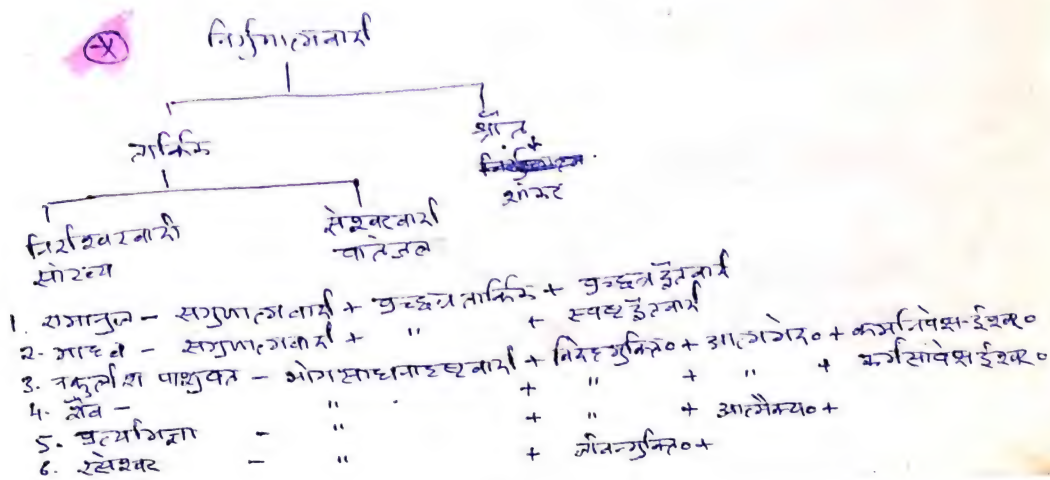 निर्गुणात्मवादी
तार्किक श्रौत
शांकर
निरीश्वरवादी सेश्वरवादी
सांख्य पातंजल
1. रामानुज - सगुणात्मवादी + प्रच्छन्न तार्किक + प्रच्छन्न द्वैतवादी
२- माध्व - सगुणात्मवादी + " + स्पष्ट द्वैतवादी
3. नकुलीश पाशुपत - भोगसाधनादृष्टवादी + विदेहमुक्ति० + आत्मभेद० + कर्मनिपेक्ष-ईश्वर०
4. शैव - " + " + " + कर्मसापेक्ष ईश्वर०
5. प्रत्यभिज्ञा - " + " + आत्मैक्य० +
6. रसेश्वर - " + जीवन्मुक्ति० +